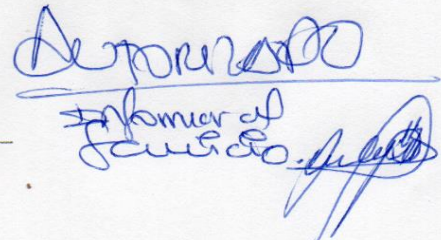 AUTORIZADO
Informar al
Servicio.